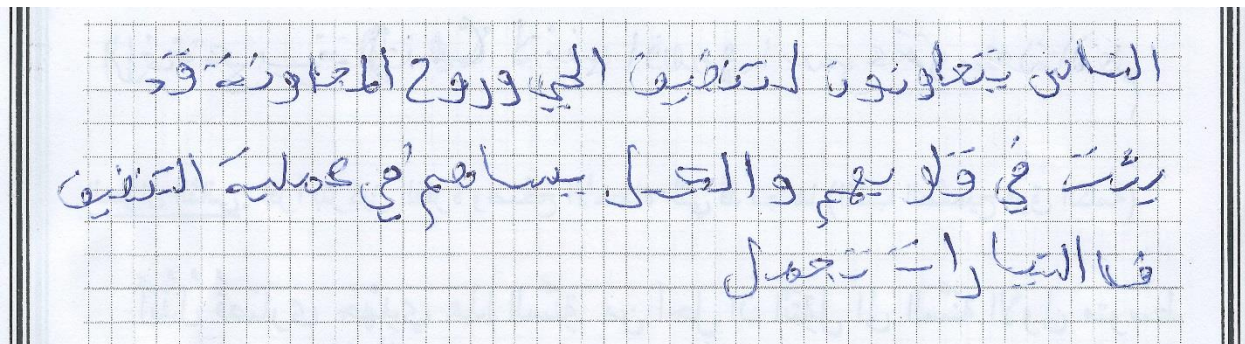 الناس يتعاونون لتنضيف الحي وروح المعاونة قد
رئت في قلوبهم والكل يساهم في عملية التنضيف
فا السيارات تحمل